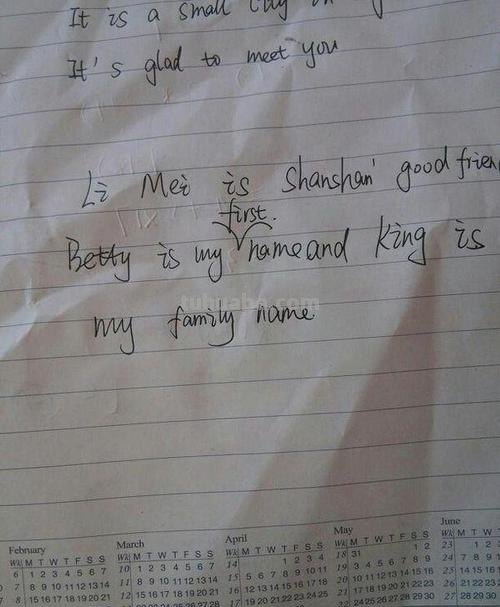 It is a small city
It's glad to meet you
Li Mei is Shanshan' good
first.
Betty is my name and King is
my family name
tuhuabo.com
February
Wk M T W T F S S
6 1 2 3 4 5 6 7
7 8 9 10 11 12 13 14
8 15 16 17 18 19 20 21
March
Wk M T W T F S S
10 1 2 3 4 5 6 7
11 8 9 10 11 12 13 14
12 15 16 17 18 19 20 21
April
Wk M T W T F S S
14 1 2 3 4
15 5 6 7 8 9 10 11
16 12 13 14 15 16 17 18
17 19 20 21 22 23 24 25
May
Wk M T W T F S S
18 31 1 2
19 3 4 5 6 7 8 9
20 10 11 12 13 14 15 16
21 17 18 19 20 21 22 23
22 24 25 26 27 28 29 30
June
Wk M T W
23 1 2
24 7 8 9
25 14 15 16
26 21 22 23
27 28 29 30